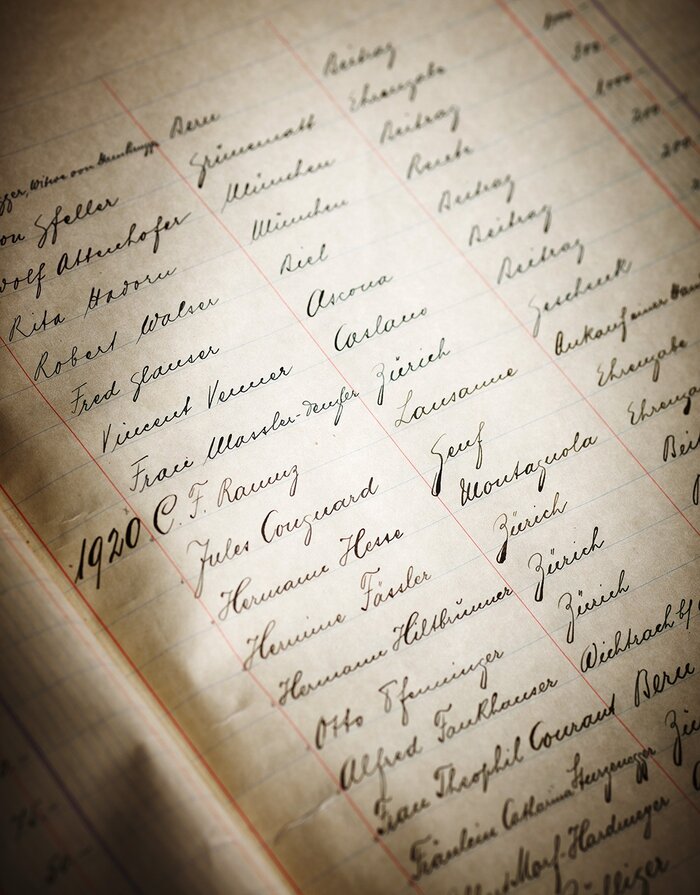 Witwe von Bern Beitrag
Gfeller Grünematt Ehrengabe 300
Attenhofer München Beitrag 1000
Rita Hadorn München Rente 200
Robert Walser Biel Beitrag 200
Fred Glauser Ascona Beitrag
Vincent Venner Coslano Beitrag
Frau Wassler-Dengler Zürich Geschenk
1920 C. F. Ramuz Lausanne Ankauf einer
Jules Couguard Genf Ehrengabe
Hermann Hesse Montagnola Ehrenga
Hermine Fässler Zürich Bei
Hermann Hiltbrunner Zürich
Otto Pfenninger Zürich
Alfred Fankhauser Wichtrach b/
Frau Theophil Courant Bern
Fräulein Catharina Sturzenegger Zü
Morf-Hardmeyer